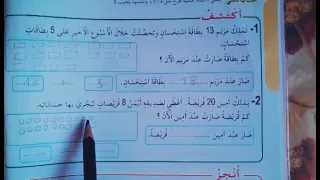 أكتشف
1- تملك مريم 13 بطاقة استحسان وتحصلت خلال الأسبوع الأخير على 5 بطاقات
استحسان.
كم بطاقة استحسان صارت عند مريم الآن ؟
صار عند مريم 18 بطاقة استحسان.
2- يملك أمين 20 قريصة. أعطى صديقه أيمن 8 قريصات ليجري بها حساباته.
كم قريصة صارت عند أمين الآن ؟
صار عند أمين قريصة.
أنجز